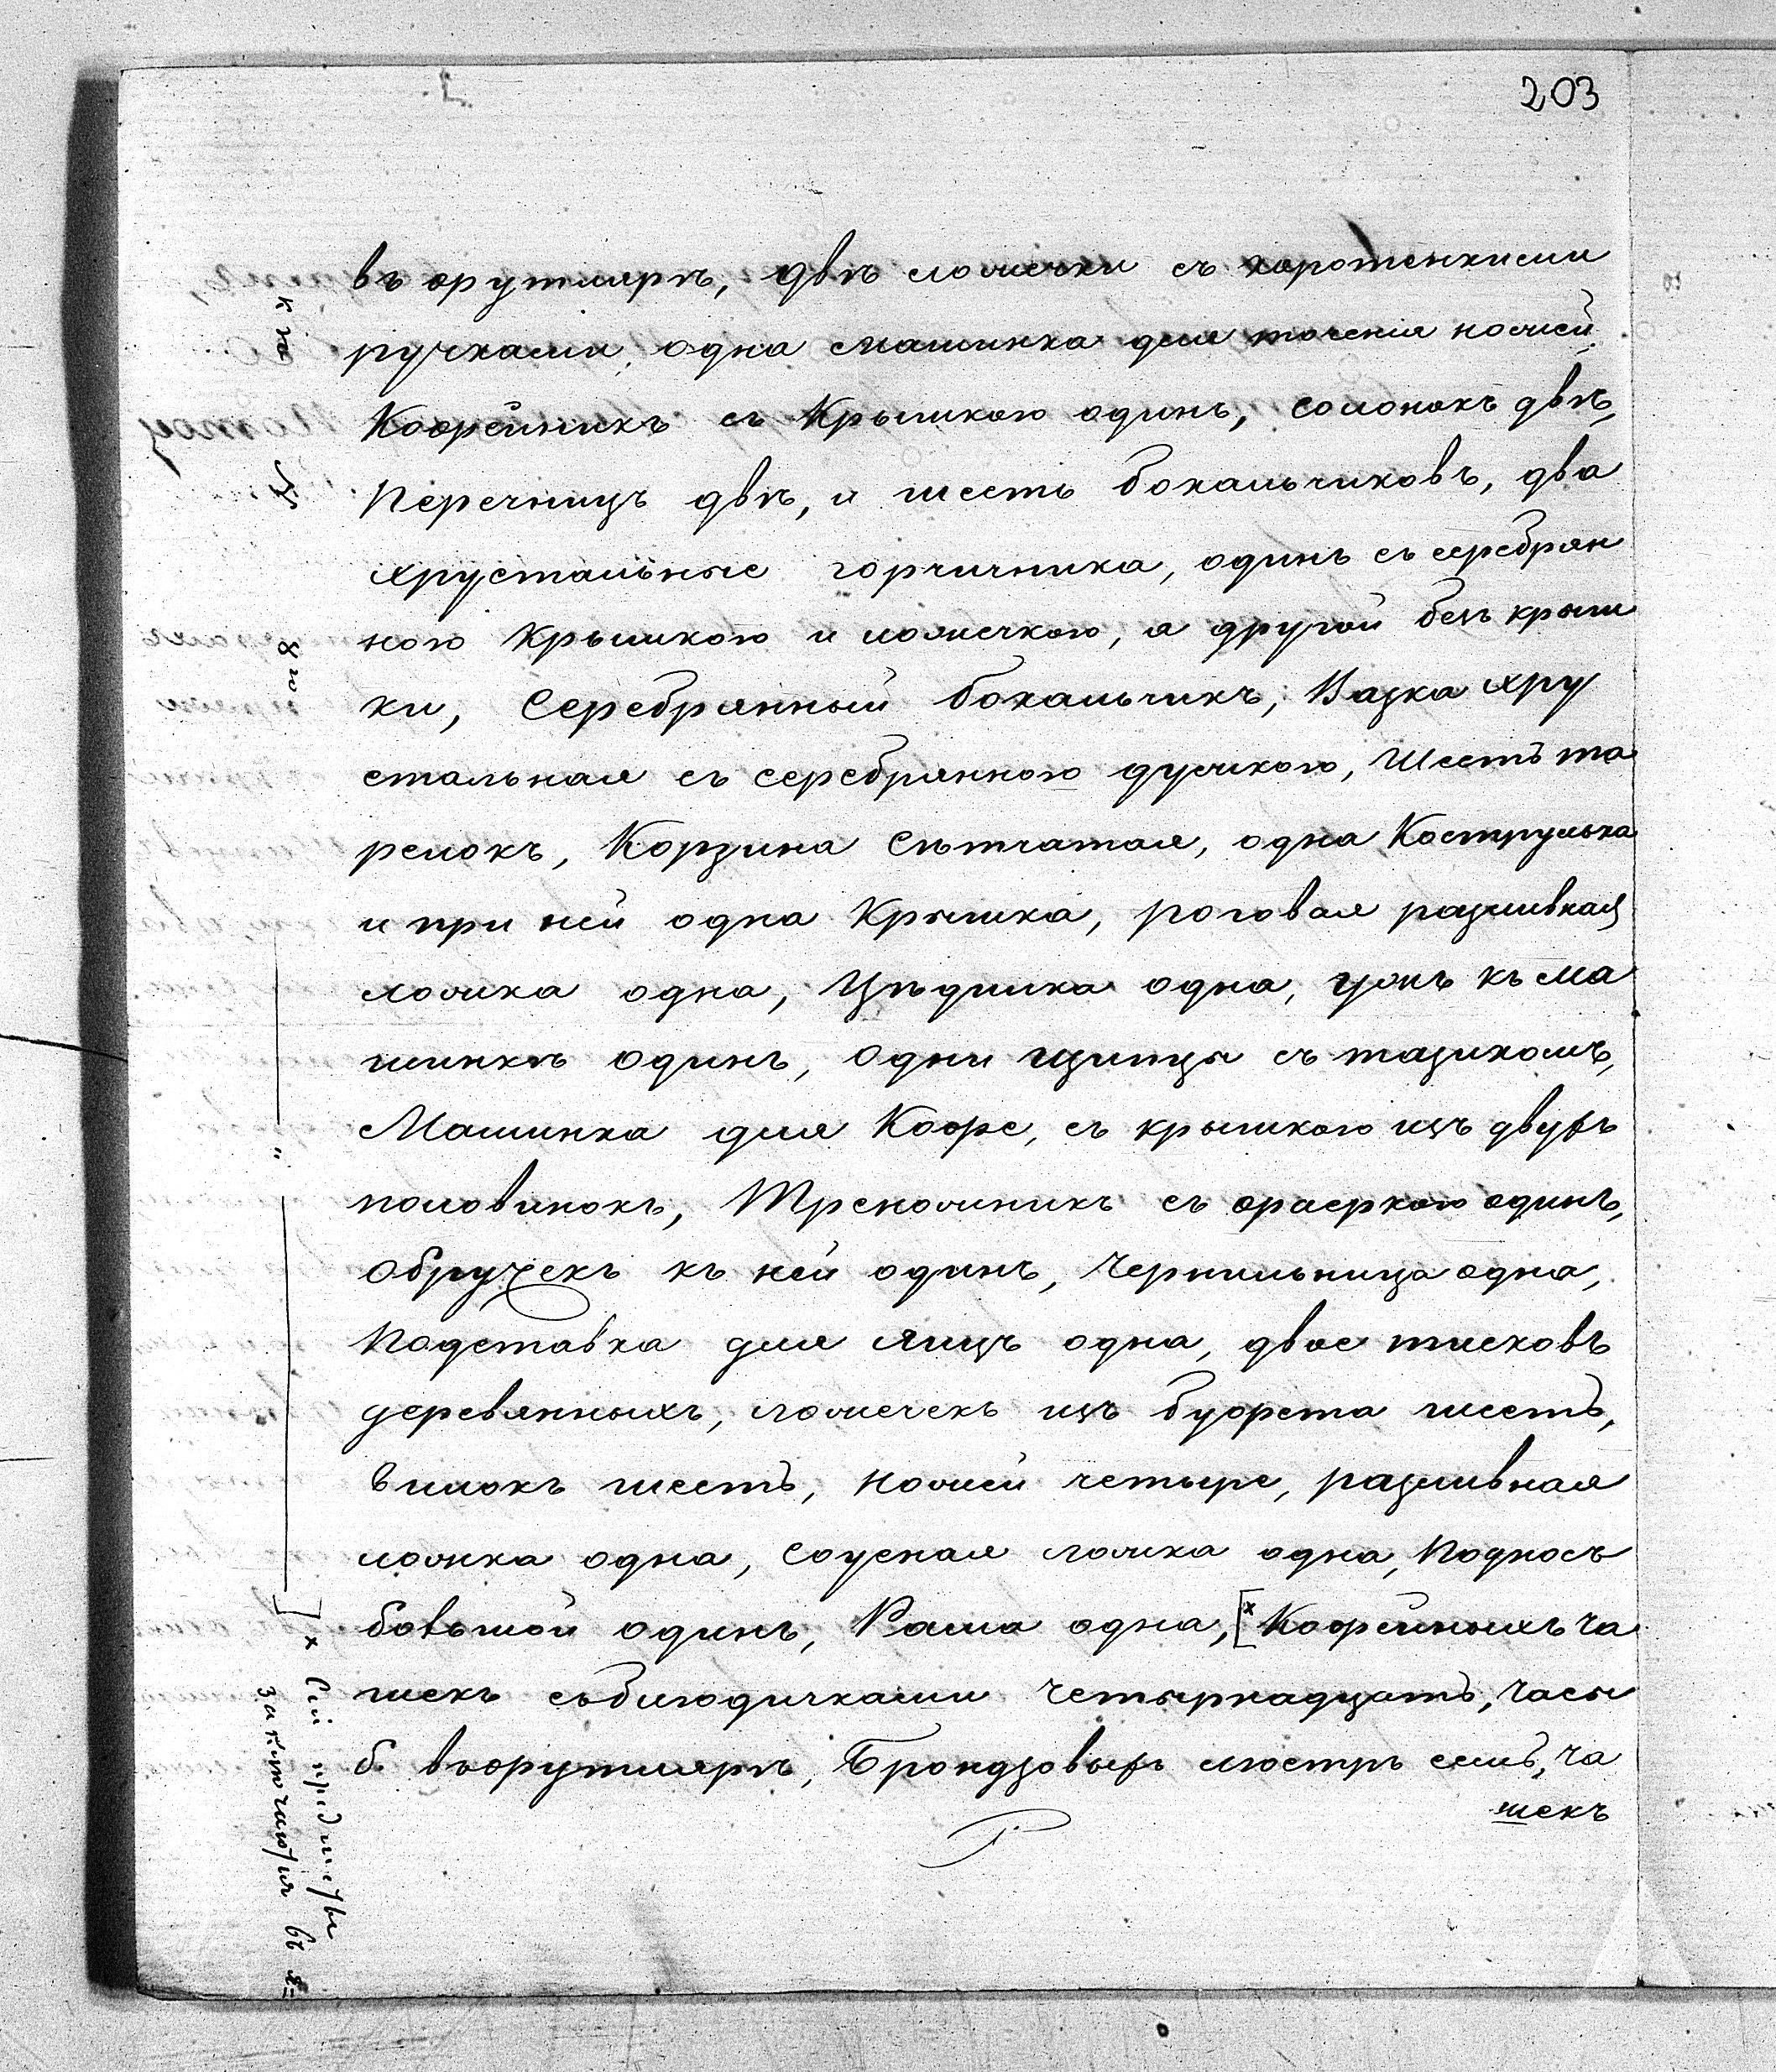 203
въ футлярѣ, двѣ ложечки съ коротенкими
ручками, одна машинка для точенія ножей
Кофейникъ съ Крышкою одинъ, солонокъ двѣ,
Перечницъ двѣ, и шесть бокальчиковъ, два
хрустальные горчичника, одинъ съ серебрян
ною Крышкою и ложечкою, а другой безъ крыш
ки, Серебрянный бокальчикъ, Вазка хру
стальная съ серебрянною дужкою, Шесть та
релокъ, Корзина Сѣтчатая, одна Кострулька
и при ней одна Крышка, роговая разливная
ложка одна, Цѣдилка одна, цонъ къ ма
шинкѣ одинъ, Одни щипцы съ тазикомъ,
Машинка для Кофе, съ крышкою изъ двухъ
половинокъ, Треножникъ съ фаеркою одинъ,
Обручекъ къ ней одинъ, Чернильница одна,
Подставка для яицъ одна, двое тисковъ
деревянныхъ, ложечекъ изъ буфета шесть,
вилокъ шесть, ножей четыре, разливная
ложка одна, Соусная ложка одна, Подносъ
большой одинъ, Рама одна, [x Кофейныхъ ча
шекъ съблюдичками Четырнадцать, Часы
б. въфутлярѣ, Брондзовыхъ люстръ семь, ча
шекъ
] x Сіи предметы
заключаются въ я=